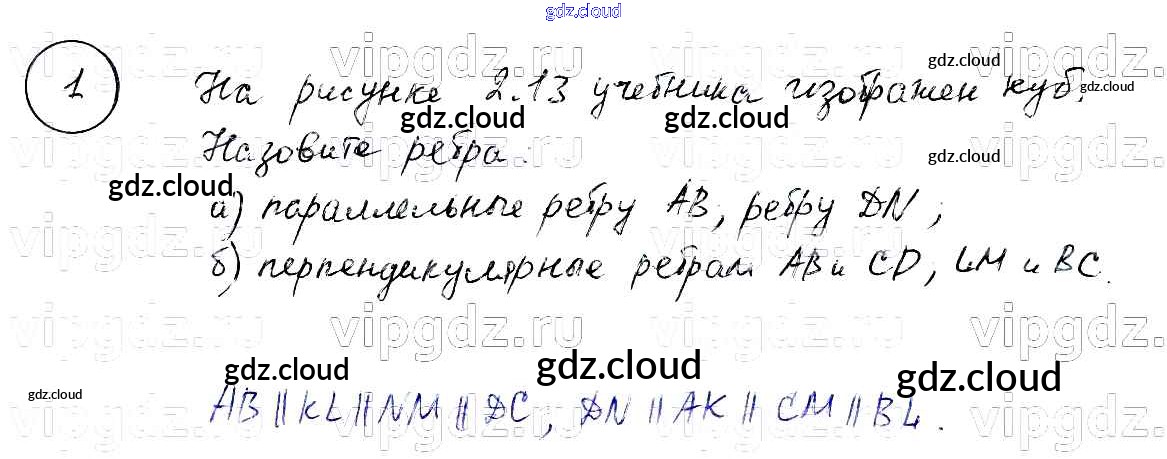 gdz.cloud
vipgdz.ru vipgdz.ru
1 На рисунке 2.13 учебника изображен куб.
gdz.cloud gdz.cloud gdz.cloud gdz.cloud
Назовите ребра:
vipgdz.ru vipgdz.ru gdz.cloud
gdz.cloud
а) параллельные ребру AB, ребру DN;
vipgdz.ru vipgdz.ru
б) перпендикулярные ребрам AB и CD, LM и BC.
vipgdz.ru vipgdz.ru
gdz.cloud gdz.cloud gdz.cloud gdz.cloud
AB || KL || NM || DC, DN || AK || CM || BL.
vipgdz.ru vipgdz.ru